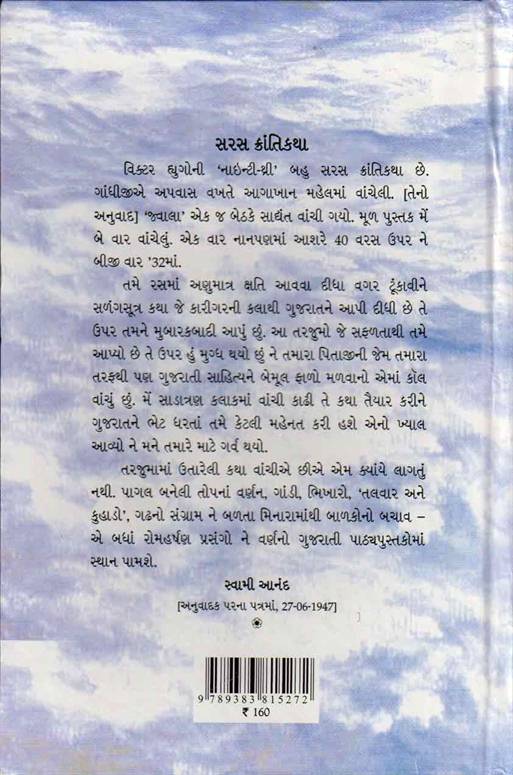 સરસ ક્રાંતિકથા
વિક્ટર હ્યુગોની ‘નાઇન્ટી-થ્રી’ બહુ સરસ ક્રાંતિકથા છે.
ગાંધીજીએ અપવાસ વખતે આગાખાન મહેલમાં વાંચેલી. [તેનો
અનુવાદ] ‘જ્વાલા’ એક જ બેઠકે સાદ્યંત વાંચી ગયો. મૂળ પુસ્તક મેં
બે વાર વાંચેલું. એક વાર નાનપણમાં આશરે 40 વરસ ઉપર ને
બીજી વાર ’32માં.
તમે રસમાં અણુમાત્ર ક્ષતિ આવવા દીધા વગર ટૂંકાવીને
સળંગસૂત્ર કથા જે કારીગરની કલાથી ગુજરાતને આપી દીધી છે તે
ઉપર તમને મુબારકબાદી આપું છું. આ તરજુમો જે સફળતાથી તમે
આપ્યો છે તે ઉપર હું મુગ્ધ થયો છું ને તમારા પિતાજીની જેમ તમારા
તરફથી પણ ગુજરાતી સાહિત્યને બેમૂલ ફાળો મળવાનો એમાં કૉલ
વાંચું છું. મેં સાડાત્રણ કલાકમાં વાંચી કાઢી તે કથા તૈયાર કરીને
ગુજરાતને ભેટ ધરતાં તમે કેટલી મહેનત કરી હશે એનો ખ્યાલ
આવ્યો ને મને તમારે માટે ગર્વ થયો.
તરજુમામાં ઉતારેલી કથા વાંચીએ છીએ એમ ક્યાંયે લાગતું
નથી. પાગલ બનેલી તોપનાં વર્ણન, ગાંડી, ભિખારો, ‘તલવાર અને
કુહાડો’, ગઢનો સંગ્રામ ને બળતા મિનારામાંથી બાળકોનો બચાવ –
એ બધાં રોમહર્ષણ પ્રસંગો ને વર્ણનો ગુજરાતી પાઠ્યપુસ્તકોમાં
સ્થાન પામશે.
સ્વામી આનંદ
[અનુવાદક પરના પત્રમાં, 27-06-1947]
9 789383 815272
₹ 160